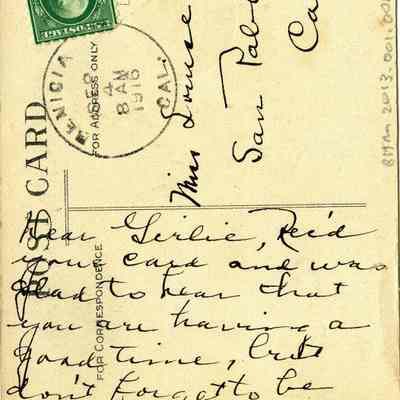 BENICIA CAL.
SEP
4
8 AM
1916
POST CARD
FOR ADDRESS ONLY
Miss Louise
San Pabl
Ca
BHM 2013.001.00
FOR CORRESPONDENCE
Dear Girlie, Rec'd
your card and was
glad to hear that
you are having a
good time, but
don't forget to be